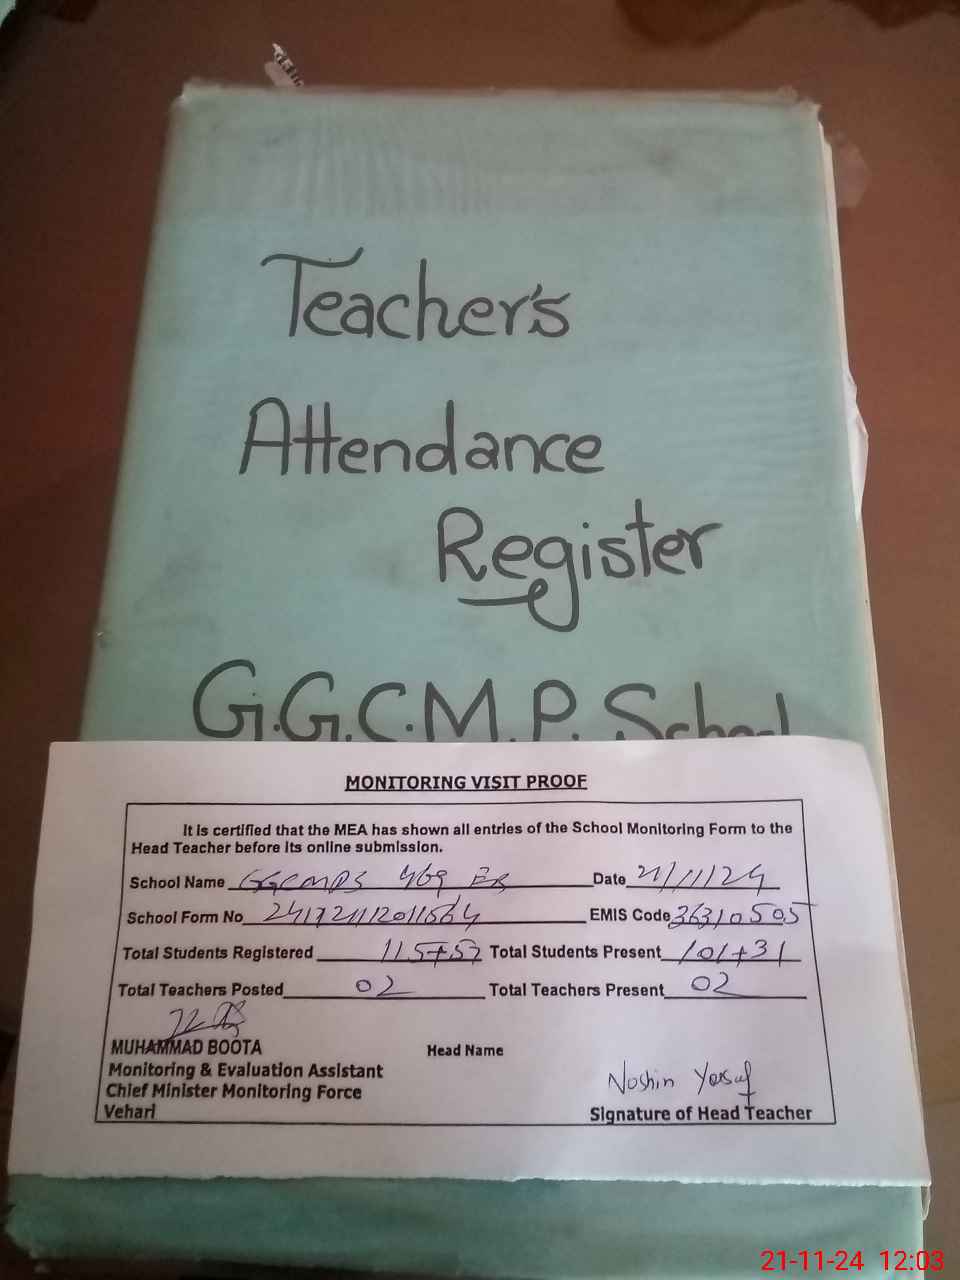 Teacher's
Attendance
Register
G.G.C.M.P. School
MONITORING VISIT PROOF
It is certified that the MEA has shown all entries of the School Monitoring Form to the
Head Teacher before its online submission.
School Name GGCMPS 469 EB Date 21/11/24
School Form No EMIS Code 36310505
Total Students Registered 115+57 Total Students Present 101+31
Total Teachers Posted 02 Total Teachers Present 02
MUHAMMAD BOOTA
Head Name
Monitoring & Evaluation Assistant
Chief Minister Monitoring Force
Noshin Yousaf
Vehari Signature of Head Teacher
21-11-24 12:03